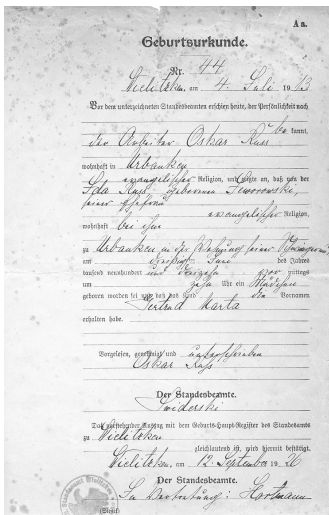 Aa.
Geburtsurkunde.
Nr. 44
Wielitzken, am 4. Juli 1913
Vor dem unterzeichneten Standesbeamten erschien heute, der Persönlichkeit nach
be kannt,
der Arbeiter Oskar Kuss
wohnhaft in Urbanken
evangelischer Religion, und zeigte an, daß von der
Ida Kuss geborenen
seiner Ehefrau
evangelischer Religion,
wohnhaft bei ihm
zu Urbanken in der Wohnung seiner
am dreißigsten Juni des Jahres
tausend neunhundert und dreizehn vor mittags
um zehn Uhr ein Mädchen
geboren worden sei und daß das Kind den Vornamen
Gertrud Marta
erhalten habe.
Vorgelesen, genehmigt und unterschrieben
Oskar Kuss
Der Standesbeamte.
Swiderski
Daß vorstehender Auszug mit dem Geburts-Haupt-Register des Standesamts
zu Wielitzken
gleichlautend ist, wird hiermit bestätigt.
Wielitzken, am 12. September 1926
Der Standesbeamte.
In Vertretung: Hartmann
(Siegel)